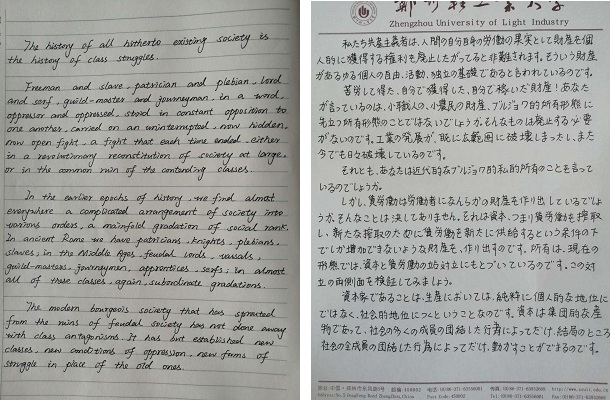 The history of all hitherto existing society is
the history of class struggles.
Freeman and slave, patrician and plebian, lord
and serf, guild-master and journeyman, in a word,
oppressor and oppressed, stood in constant opposition to
one another, carried on an uninterrupted, now hidden,
now open fight, a fight that each time ended, either
in a revolutionary reconstitution of society at large,
or in the common ruin of the contending classes.
In the earlier epochs of history, we find almost
everywhere a complicated arrangement of society into
various orders, a mainfold gradation of social rank.
In ancient Rome we have patricians, knights, plebians,
slaves; in the Middle Ages, feudal lords, vassals,
guild-masters, journeymen, apprentices, serfs; in almost
all of these classes, again, subordinate gradations.
The modern bourgeois society that has sprouted
from the ruins of feudal society has not done away
with class antagonisms. It has but established new
classes, new conditions of oppression, new forms of
struggle in place of the old ones.
郑州轻工业大学
Zhengzhou University of Light Industry
私たち共産主義者は、人間の自分自身の労働の果実として財産を個
人的に獲得する権利も廃止したがってると非難されます。そういう財産
があらゆる個人の自由、活動、独立の基礎であると言われているのです。
苦労して得た、自分で獲得した、自分で稼いだ財産！あなた
が言っているのは、小職人の、小農民の財産、ブルジョワ的所有形態に
先立つ所有形態のことではないでしょうか。そんなものは廃止する必要
がないのです。工業の発展が、既に広範囲に破壊しまったし、また
今でも日々破壊しているのです。
それとも、あなたは近代的なブルジョワ的私的所有のことを言って
いるのでしょうか。
しかし、賃労働は労働者になんらかの財産を作り出しているでしょ
うか。そんなことは決してありません。それは資本、つまり賃労働を搾取
し、新たな搾取のために賃労働を新たに供給するという条件の下
でしか増加できないような財産を、作り出すのです。所有は、現在の
形態では、資本と賃労働の対立にもとづいているのです。この対
立の両側面を検証してみましょう。
資本家であることは、生産においては、純粋に個人的な地位に
ではなく、社会的地位につくということなのです。資本は集団的な産
物であって、社会の多くの成員の団結した行為によってだけ、結局のところ
社会の全成員の団結した行為によってだけ、動かすことができるのです。